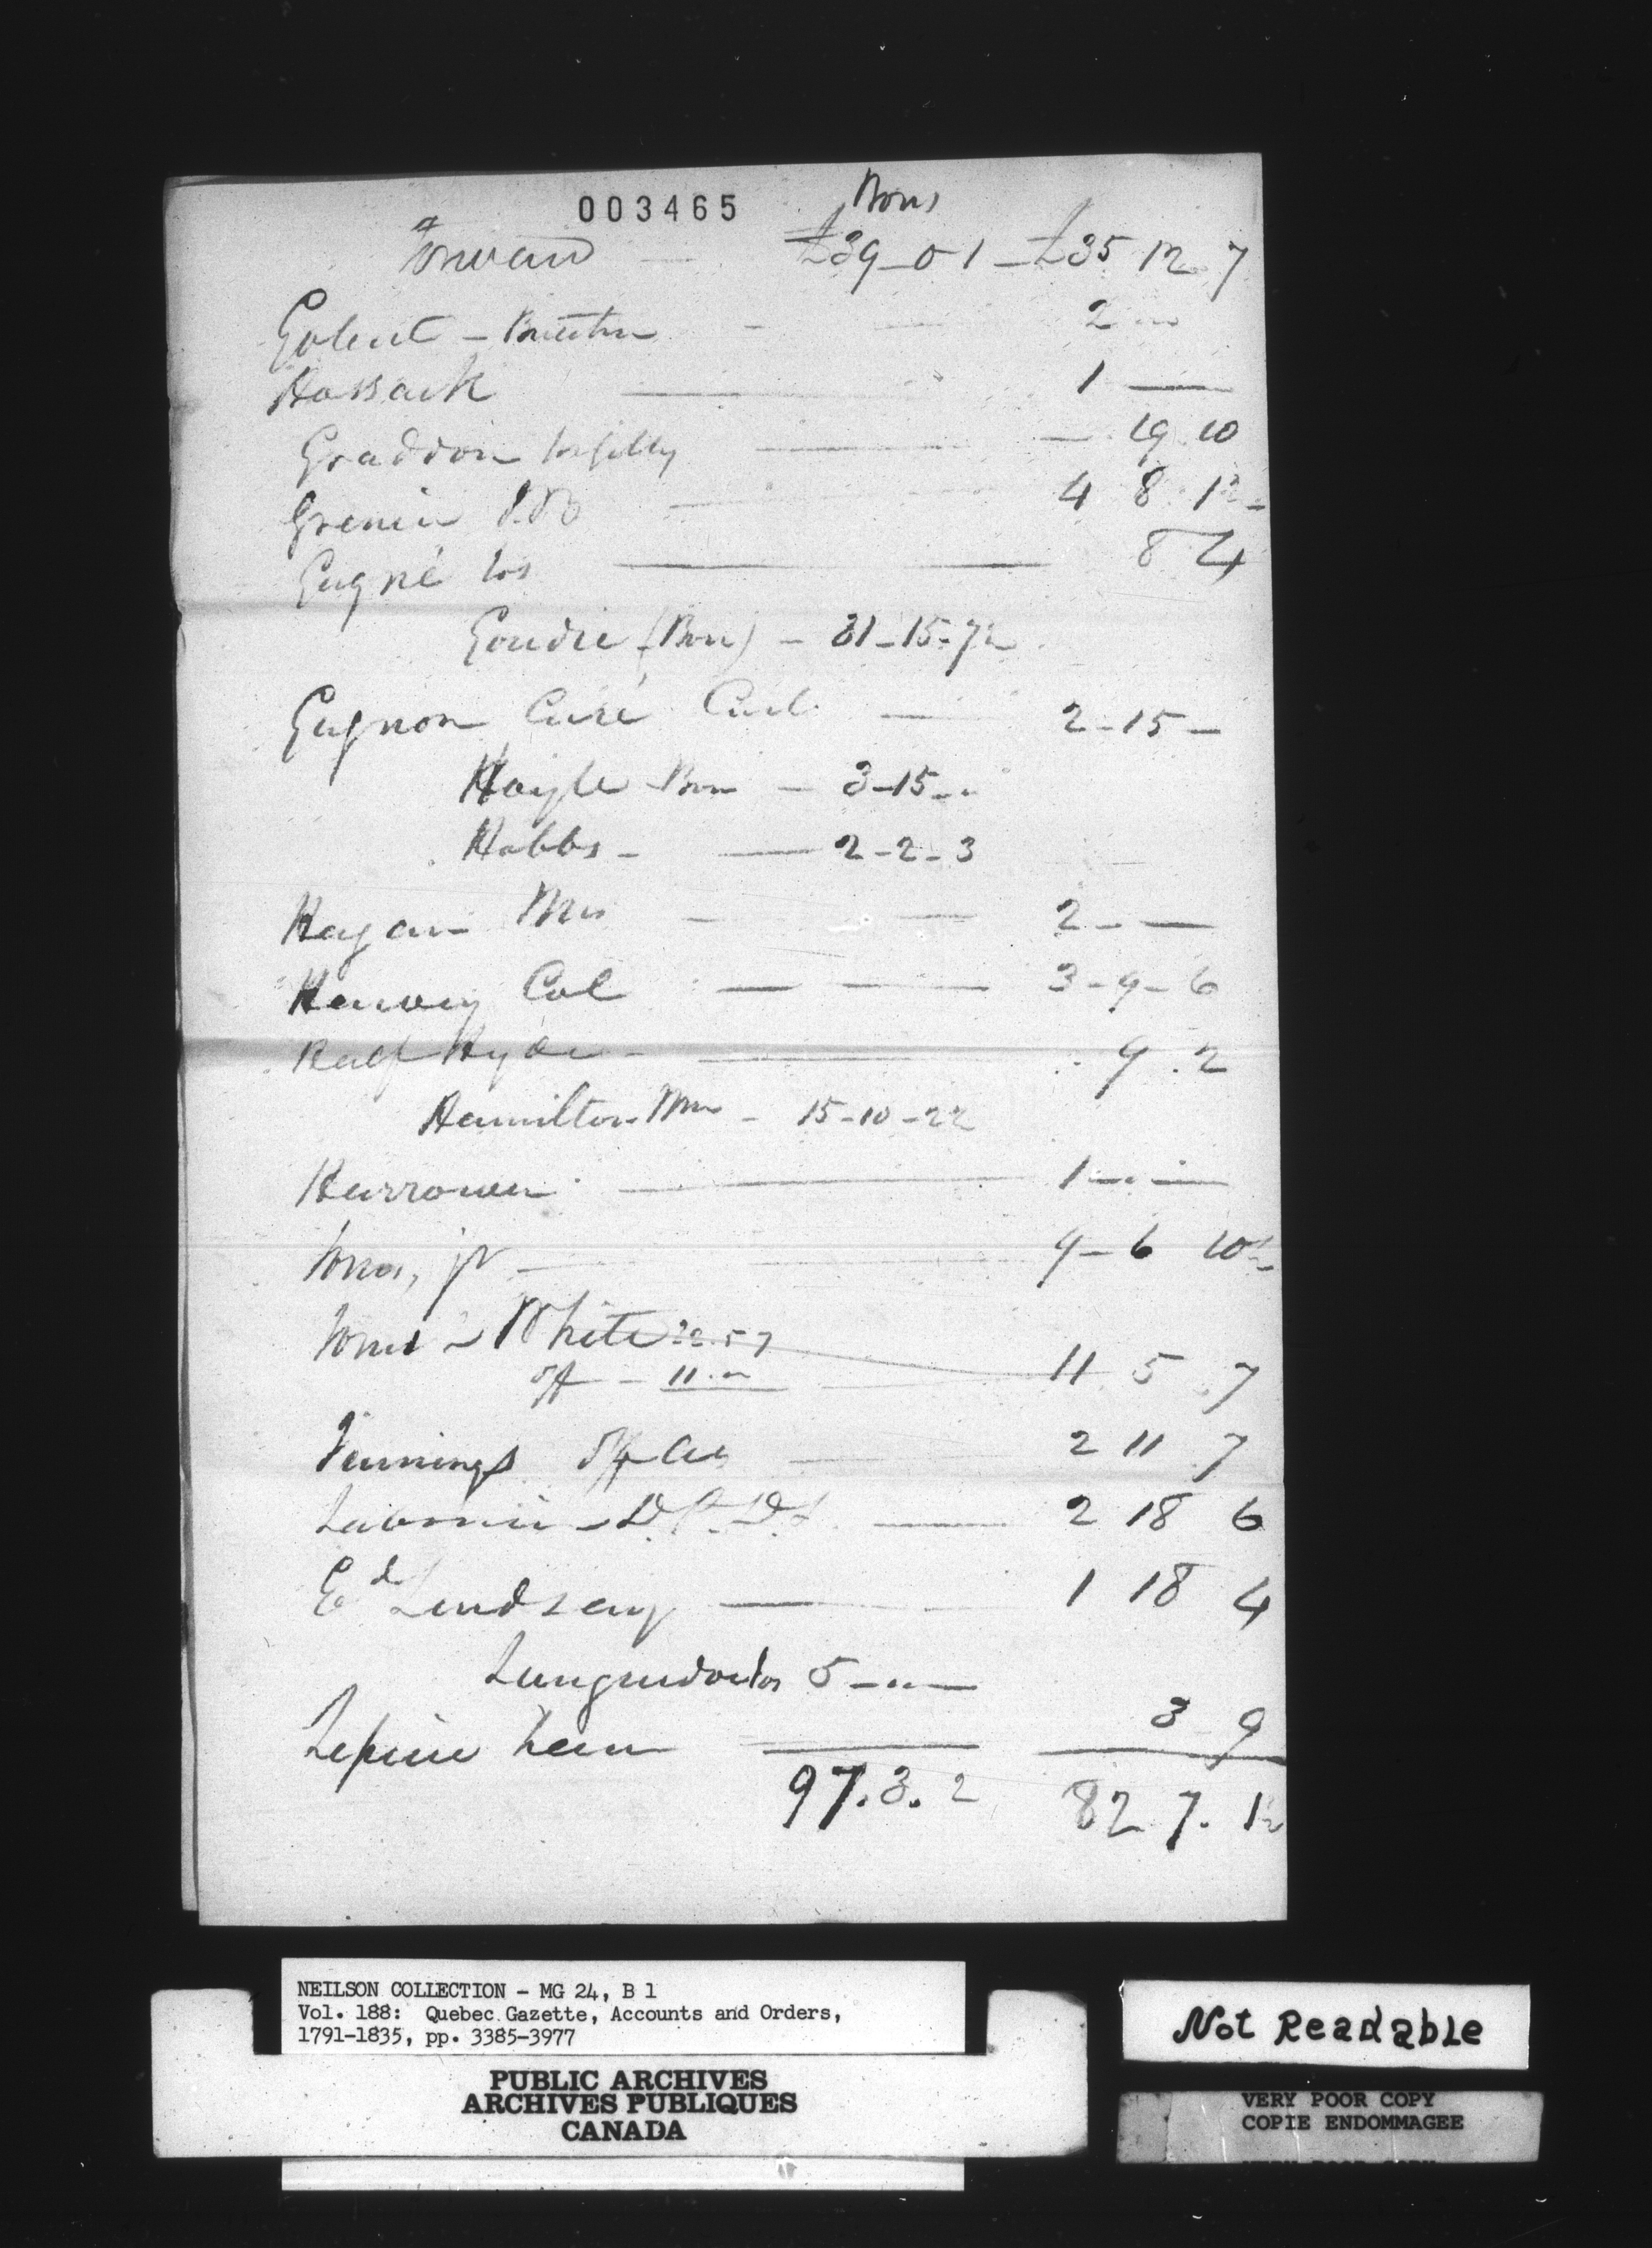 003465
Bons
Forward — £39–0 1 – £35 12 7
– 2 –
Hossack — 1 —
19 10
Grenier — 4 8 1½
Gagné Jos — 8 4
Goudie (Bon) – 31–15–7½
Gagnon Curé — 2–15 –
Hoyle Bon – 3–15 –
Hobbs – — 2–2–3
Hagan Mrs — 2 – —
Harvey Col — 3–9–6
Ralf Hyde – — 9 . 2
Hamilton Wm – 15–10–2½
Harrower — 1 —
Jones, jr — 9–6 10½
Jones & White 22.5 7
off – 11 . – 11 5 7
Jennings off Ac — 2 11 7
2 18 6
Ed Lindsay — 1 18 4
5 —
Lepine 3 9
97.3.2 82 7. 1½
NEILSON COLLECTION - MG 24, B 1
Vol. 188: Quebec Gazette, Accounts and Orders,
1791-1835, pp. 3385-3977
PUBLIC ARCHIVES
ARCHIVES PUBLIQUES
CANADA
Not Readable
VERY POOR COPY
COPIE ENDOMMAGEE